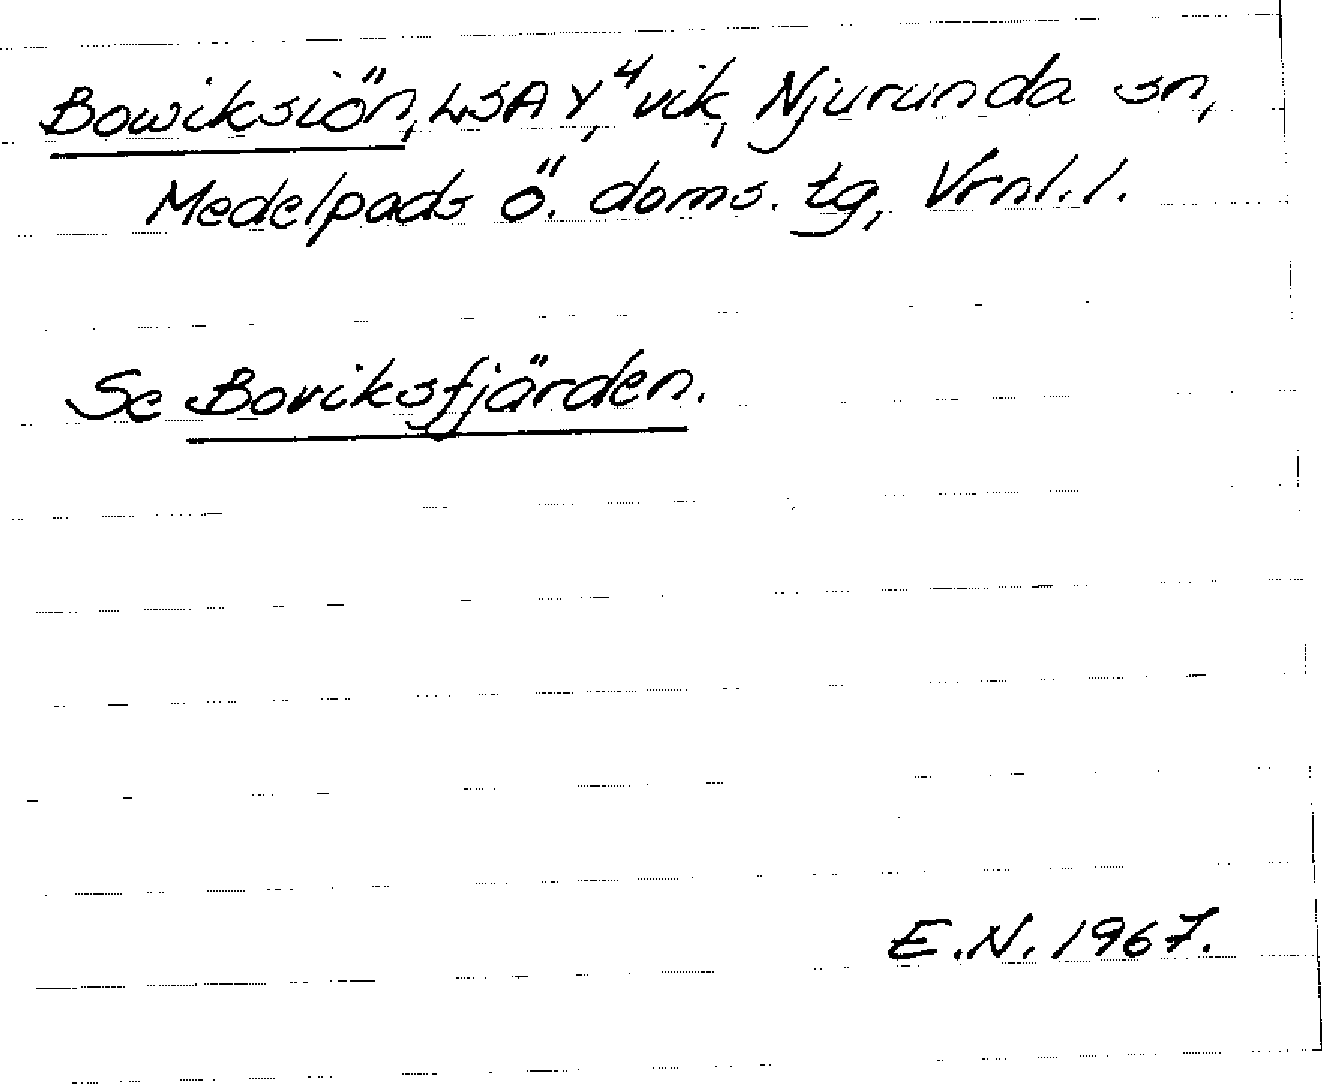 Bowiksiön, LSA Y,⁴ vik, Njurunda sn,
Medelpads ö. doms. tg, Vrnl. l.
Se Boviksfjärden.
E.N. 1967.